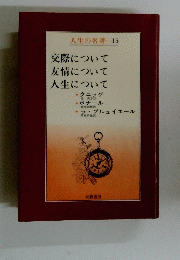 人生の名著 15
交際について
友情について
人生について
•クニッゲ
•ボナール
•ラ・ブリュイエール